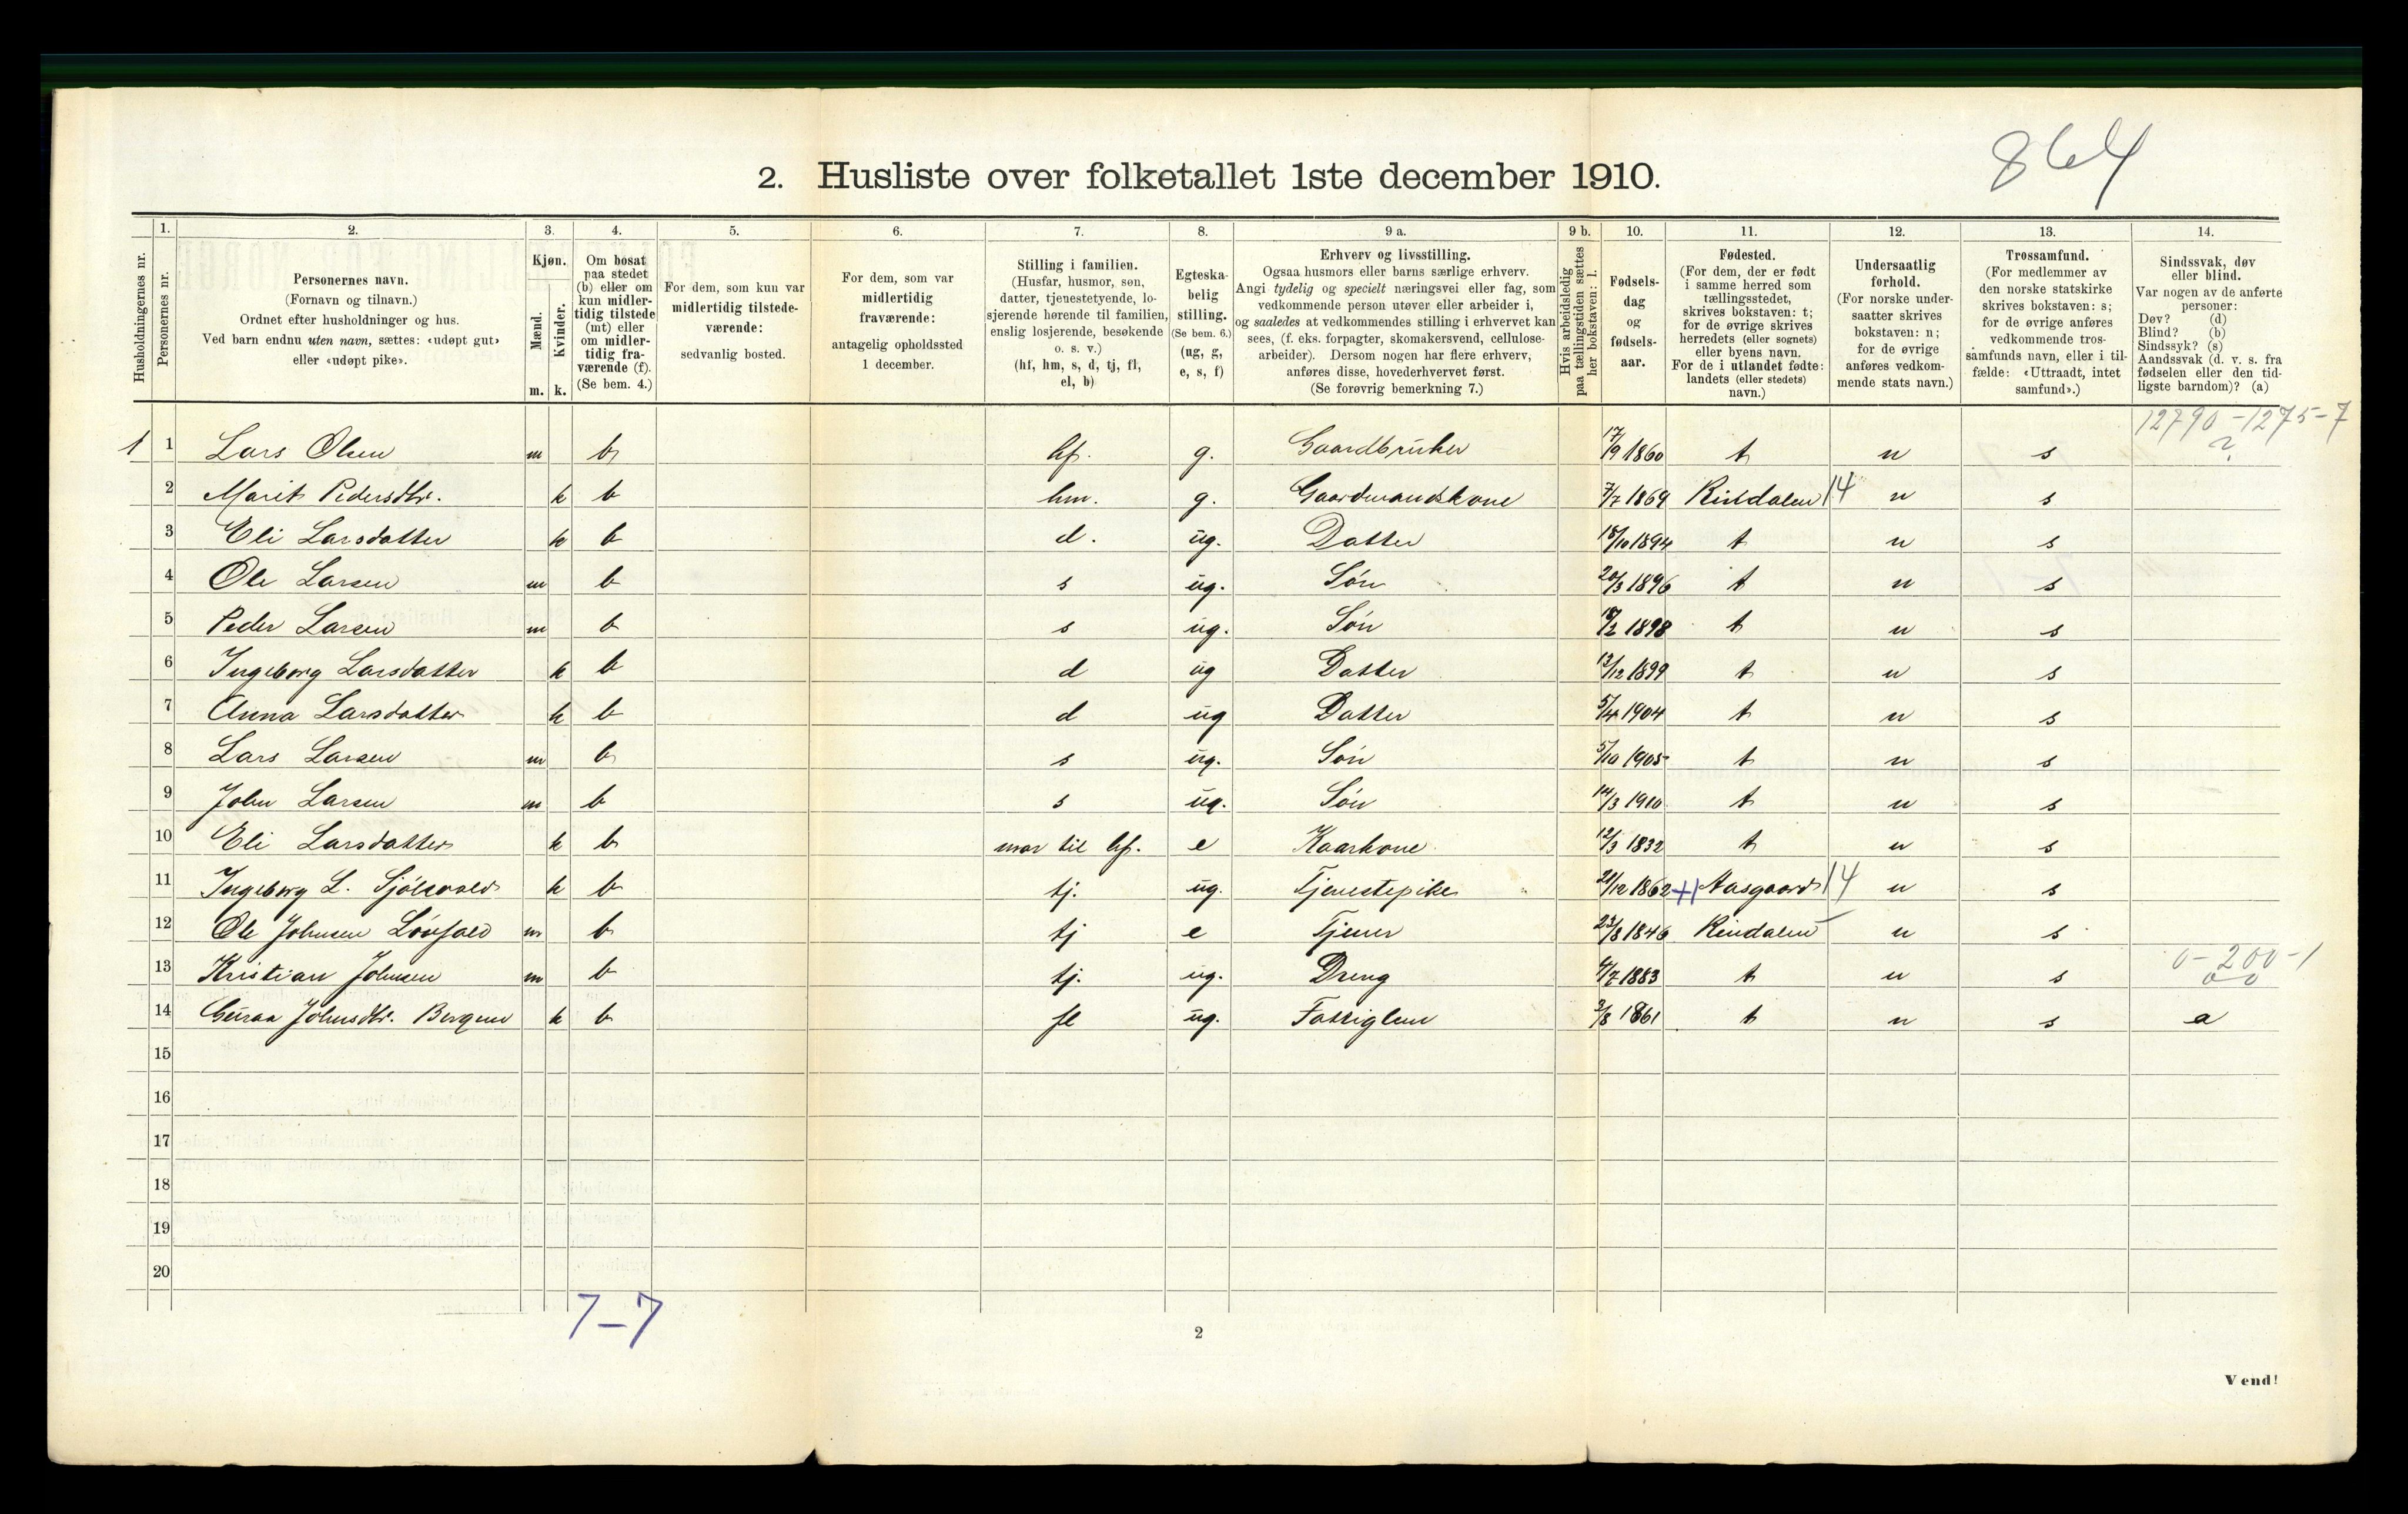 864
2. Husliste over folketallet 1ste december 1910.
Husholdningernes nr.
1.
Personernes nr.
2.
Personernes navn.
(Fornavn og tilnavn.)
Ordnet efter husholdninger og hus.
Ved barn endnu uten navn, sættes: «udøpt gut»
eller «udøpt pike».
3.
Kjøn.
Mænd.
Kvinder.
m. k.
4.
Om bosat
paa stedet
(b) eller om
kun midler-
tidig tilstede
(mt) eller
om midler-
tidig fra-
værende (f).
(Se bem. 4.)
5.
For dem, som kun var
midlertidig tilstede-
værende:
sedvanlig bosted.
6.
For dem, som var
midlertidig
fraværende:
antagelig opholdssted
1 december.
7.
Stilling i familien.
(Husfar, husmor, søn,
datter, tjenestetyende, lo-
sjerende hørende til familien,
enslig losjerende, besøkende
o. s. v.)
(hf, hm, s, d, tj, fl,
el, b)
8.
Egteska-
belig
stilling.
(Se bem. 6.)
(ug, g,
e, s, f)
9 a.
Erhverv og livsstilling.
Ogsaa husmors eller barns særlige erhverv.
Angi tydelig og specielt næringsvei eller fag, som
vedkommende person utøver eller arbeider i,
og saaledes at vedkommendes stilling i erhvervet kan
sees, (f. eks. forpagter, skomakersvend, cellulose-
arbeider). Dersom nogen har flere erhverv,
anføres disse, hovederhvervet først.
(Se forøvrig bemerkning 7.)
9 b.
Hvis arbeidsledig
paa tællingstiden sættes
her bokstaven: l.
10.
Fødsels-
dag
og
fødsels-
aar.
11.
Fødested.
(For dem, der er født
i samme herred som
tællingsstedet,
skrives bokstaven: t;
for de øvrige skrives
herredets (eller sognets)
eller byens navn.
For de i utlandet fødte:
landets (eller stedets)
navn.)
12.
Undersaatlig
forhold.
(For norske under-
saatter skrives
bokstaven: n;
for de øvrige
anføres vedkom-
mende stats navn.)
13.
Trossamfund.
(For medlemmer av
den norske statskirke
skrives bokstaven: s;
for de øvrige anføres
vedkommende tros-
samfunds navn, eller i til-
fælde: «Uttraadt, intet
samfund».)
14.
Sindssvak, døv
eller blind.
Var nogen av de anførte
personer:
Døv? (d)
Blind? (b)
Sindssyk? (s)
Aandssvak (d. v. s. fra
fødselen eller den tid-
ligste barndom)? (a)
12790-1275-7
2
1 1 Lars Olsen m b hf. g. Gaardbruker 17/9 1860 t n s
2 Marit Pedersdtr. k b hm. g. Gaardmandskone 7/7 1869 Rindalen 14 n s
3 Eli Larsdatter k b d. ug. Datter 18/10 1894 t n s
4 Ole Larsen m b s ug. Søn 20/3 1896 t n s
5 Peder Larsen m b s ug. Søn 1898 t n s
6 Ingeborg Larsdatter k b d ug Datter 13/12 1899 t n s
7 Anna Larsdatter k b d ug Datter 5/4 1904 t n s
8 Lars Larsen m b s ug. Søn 5/10 1905 t n s
9 John Larsen m b s ug. Søn 14/3 1910 t n s
10 Eli Larsdatter k b mor til hf. e Kaarkone 12/3 1832 t n s
11 Ingeborg L. k b tj. ug. Tjenestepike 21/12 1862 Aasgaard 14 n s
12 Ole Johnsen Lønfald m b tj e Tjener 23/8 1846 Rindalen n s
0-200-1
0-0
13 Kristian Johnsen m b tj. ug. Dreng 4/7 1883 t n s
14 Johnsdtr. k b fl ug. Fattiglem 3/8 1861 t n s a
15
16
17
18
19
20
7-7
2
Vend!